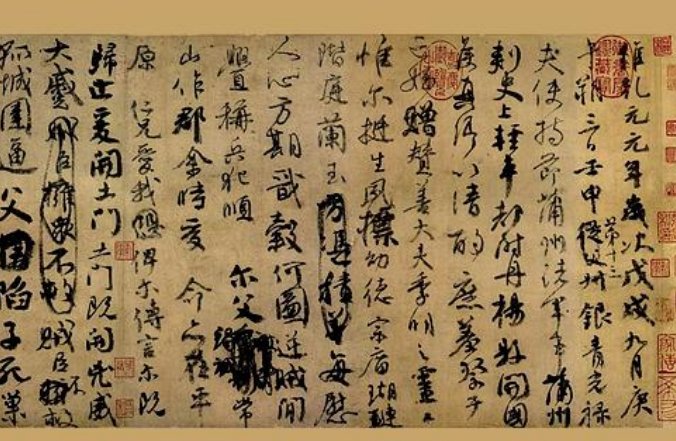 維乾元元年歲次戊戌九月庚
午朔三日壬申第十三叔銀青光祿
夫使持節蒲州諸軍事蒲州
刺史上輕車都尉丹楊縣開國
侯真卿以清酌庶羞祭于
亡姪贈贊善大夫季明之靈曰
惟爾挺生夙標幼德宗廟瑚璉
階庭蘭玉方憑積善每慰
人心方期戩穀何圖逆賊閒
釁稱兵犯順 爾父竭誠常
山作郡余時受 命亦在平
原 仁兄愛我俾爾傳言爾既
歸止爰開土門土門既開凶威
大蹙賊臣擁眾不救賊臣不救
孤城圍逼父陷子死巢